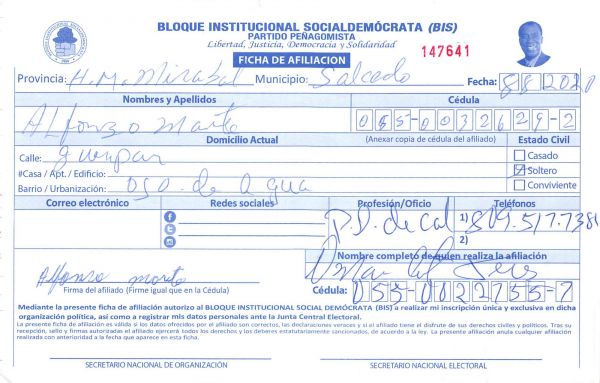 BLOQUE INSTITUCIONAL SOCIALDEMÓCRATA (BIS)
PARTIDO PEÑAGOMISTA
Libertad, Justicia, Democracia y Solidaridad
FICHA DE AFILIACION
147641
Provincia: H.M. Mirabal Municipio: Salcedo Fecha: 8 8 2020
Nombres y Apellidos Cédula
Alfonso Marte 055-0032629-2
Domicilio Actual (Anexar copia de cédula del afiliado) Estado Civil
Calle: Casado
#Casa / Apt. / Edificio: Soltero
Barrio / Urbanización: oso. de agua Conviviente
Correo electrónico Redes sociales Profesión/Oficio Teléfonos
P.D. de cal 1) 809.517.738
2)
Nombre completo de quien realiza la afiliación
Alfonso marte
Firma del afiliado (Firme igual que en la Cédula) Cédula: 055-0022755-7
Mediante la presente ficha de afiliación autorizo al BLOQUE INSTITUCIONAL SOCIAL DEMÓCRATA (BIS) a realizar mi inscripción única y exclusiva en dicha
organización política, así como a registrar mis datos personales ante la Junta Central Electoral.
La presente ficha de afiliación es válida si los datos ofrecidos por el afiliado son correctos, las declaraciones veraces y si el afiliado tiene el disfrute de sus derechos civiles y políticos. Tras su
recepción, sello y firmas autorizadas el afiliado ejercerá todos los derechos y los deberes estatutariamente sancionados, de acuerdo a la ley. La presente afiliación anula cualquier afiliación
realizada con anterioridad a la fecha que aparece en esta ficha.
SECRETARIO NACIONAL DE ORGANIZACIÓN SECRETARIO NACIONAL ELECTORAL